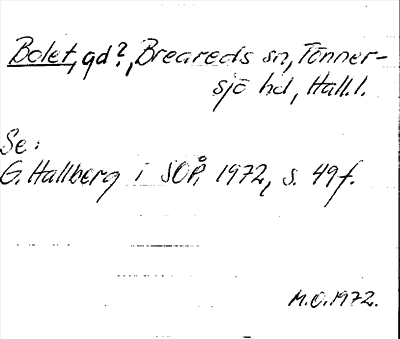 Bolet, gd?, Breareds sn, Tönner-
sjö hd, Hall. l.
Se:
G. Hallberg i SOÅ, 1972, s. 49f.
M.O. 1972.